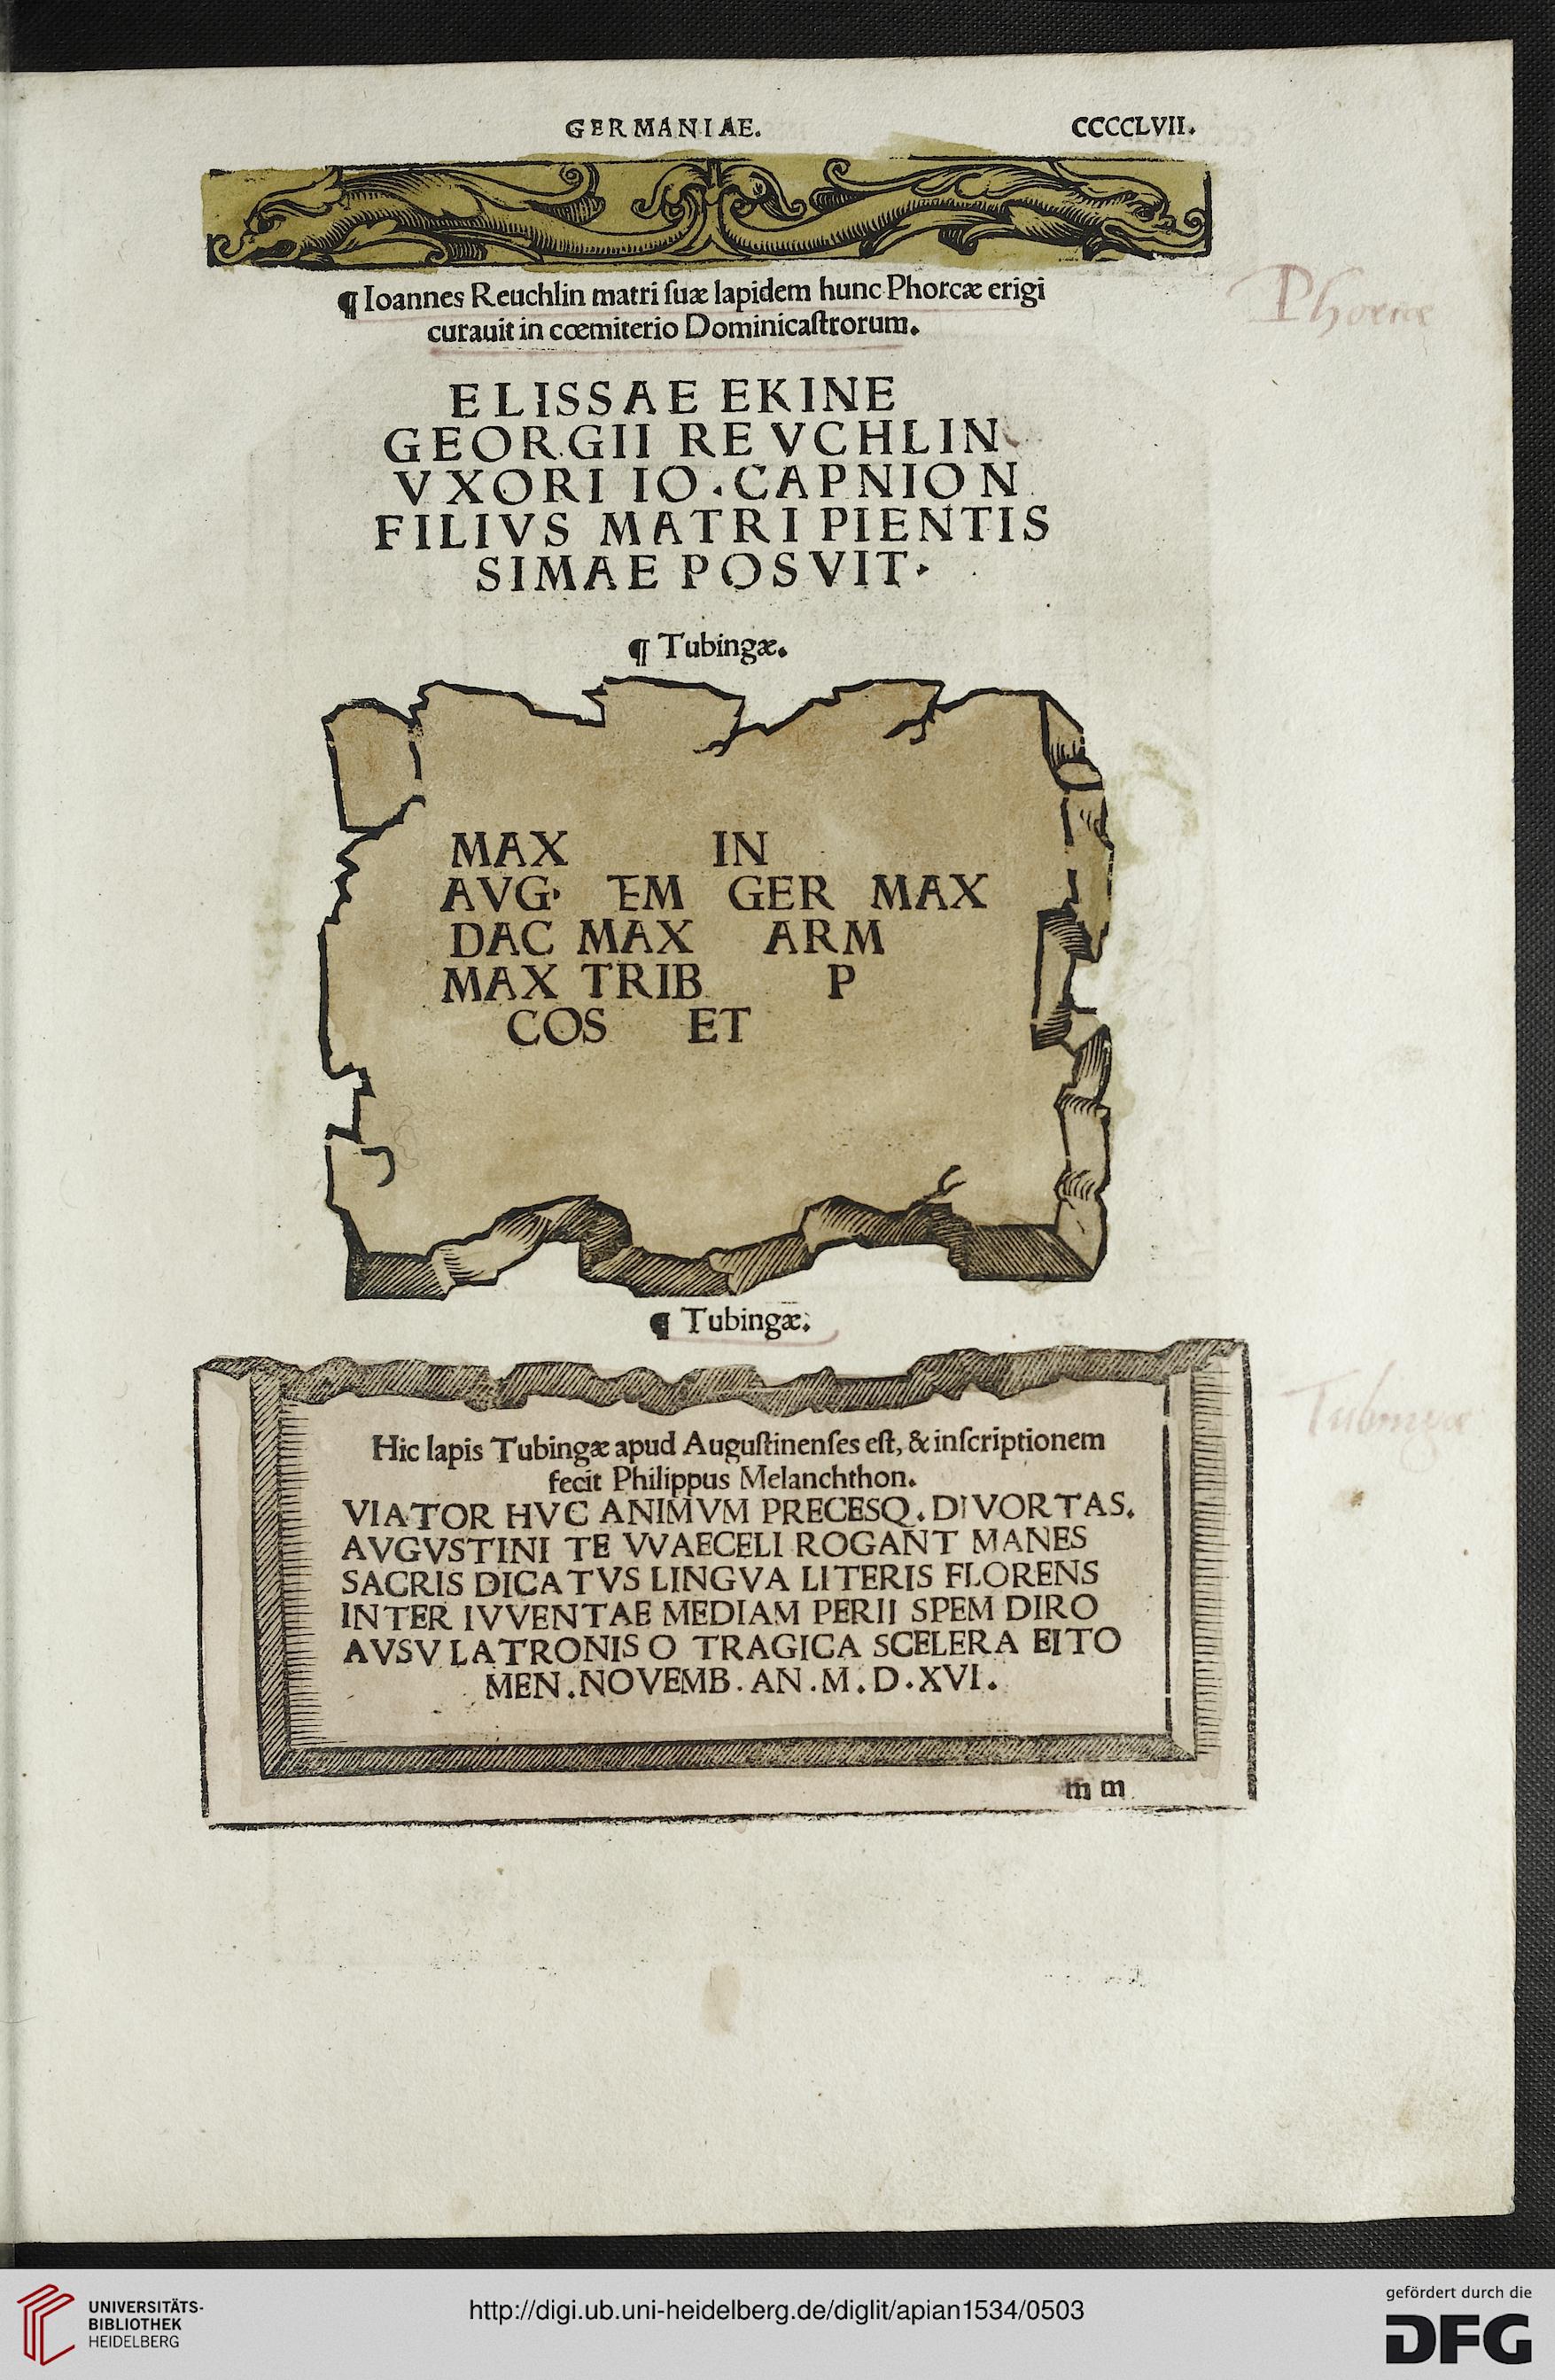 GERMANIAE.
CCCCLVII.
¶ Ioannes Reuchlin matri ſuæ lapidem hunc Phorcæ erigi
Phorcæ
curauit in cœmiterio Dominicaſtrorum.
ELISSAE EKINE
GEORGII REVCHLIN
VXORI IO. CAPNION
FILIVS MATRI PIENTIS
SIMAE POSVIT.
¶ Tubingæ.
MAX IN
AVG· EM GER MAX
DAC MAX ARM
MAX TRIB P
COS ET
¶ Tubingæ.
Tubingæ
Hic lapis Tubingæ apud Auguſtinenſes eſt, & inſcriptionem
fecit Philippus Melanchthon.
VIATOR HVC ANIMVM PRECESQ. DIVORTAS.
AVGVSTINI TE VVAECELI ROGANT MANES
SACRIS DICATVS LINGVA LITERIS FLORENS
INTER IVVENTAE MEDIAM PERII SPEM DIRO
AVSV LATRONIS O TRAGICA SCELERA EITO
MEN. NOVEMB. AN. M. D. XVI.
m m
UNIVERSITÄTS-
BIBLIOTHEK
HEIDELBERG
http://digi.ub.uni-heidelberg.de/diglit/apian1534/0503
gefördert durch die
DFG